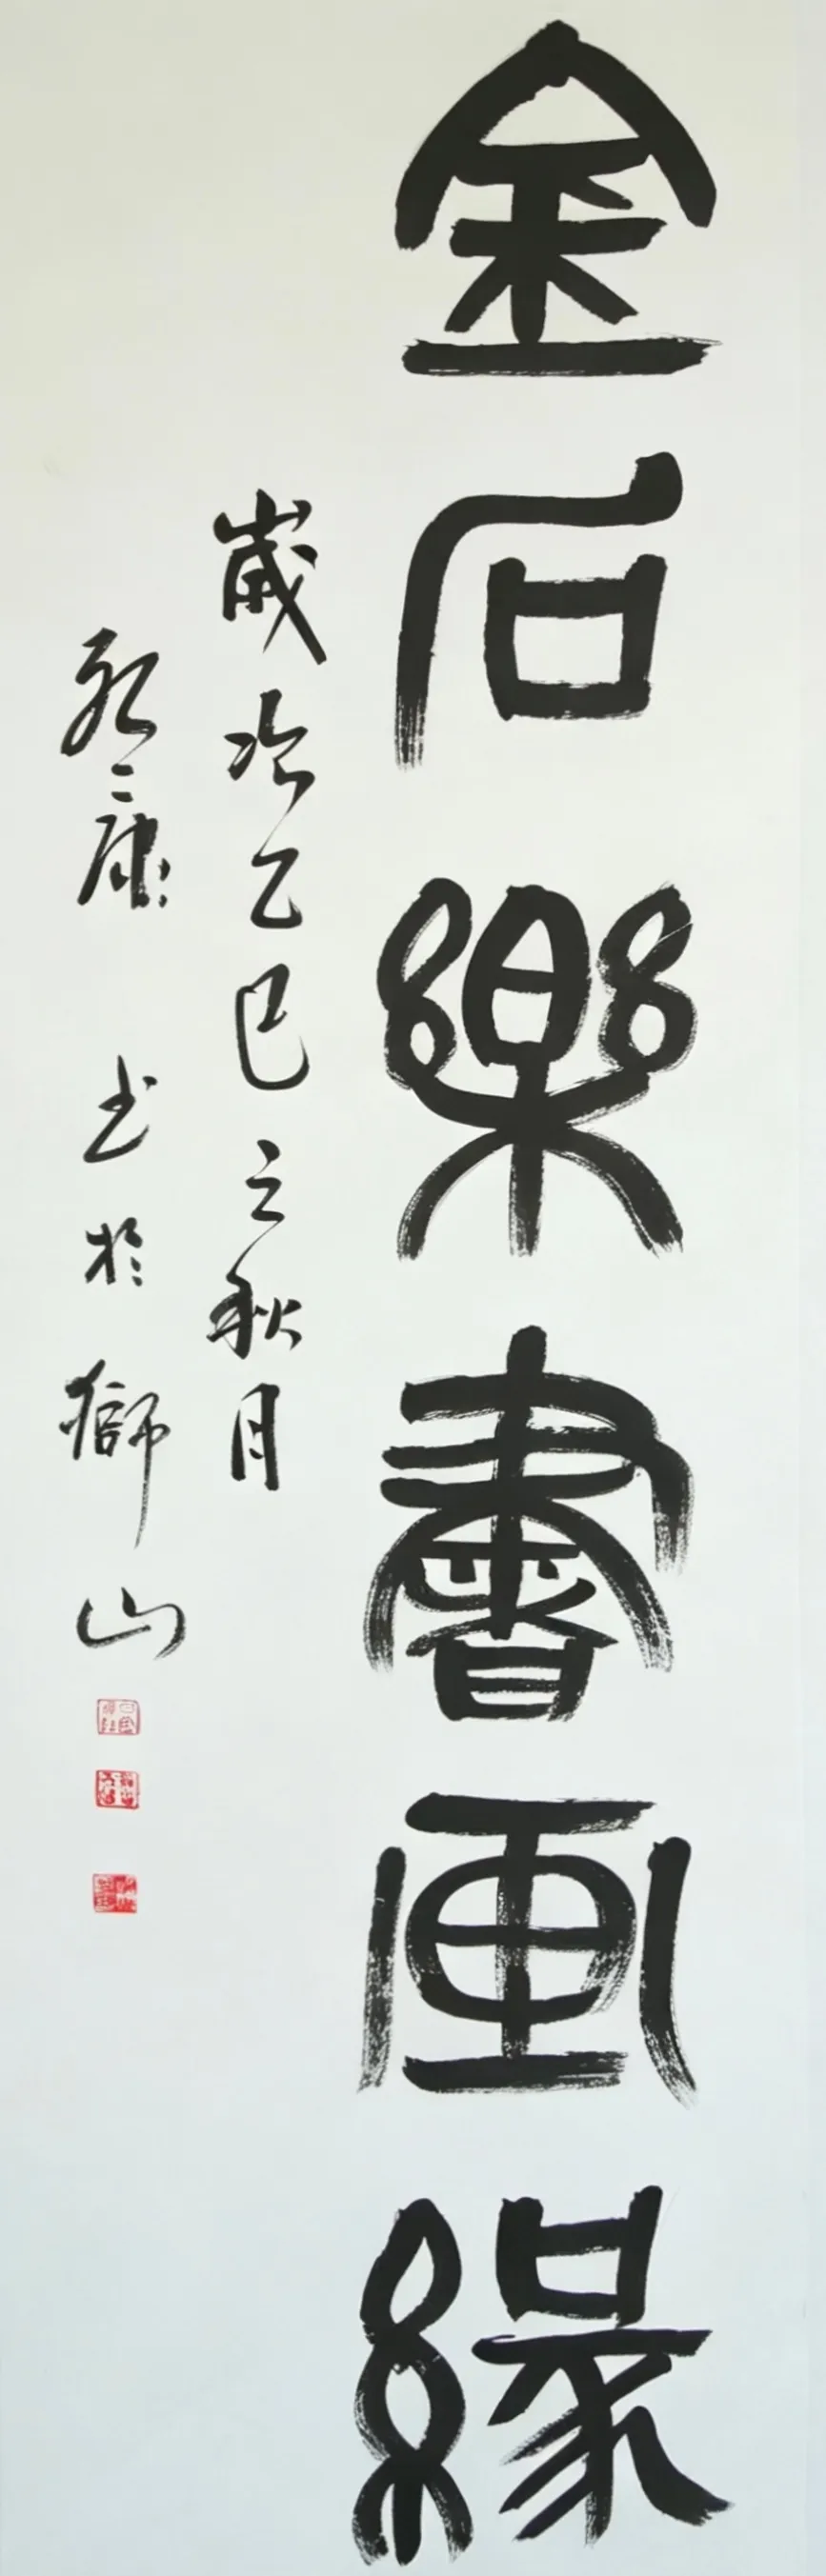 金石樂書画緣
歲次乙巳之秋月
康 书於獅山